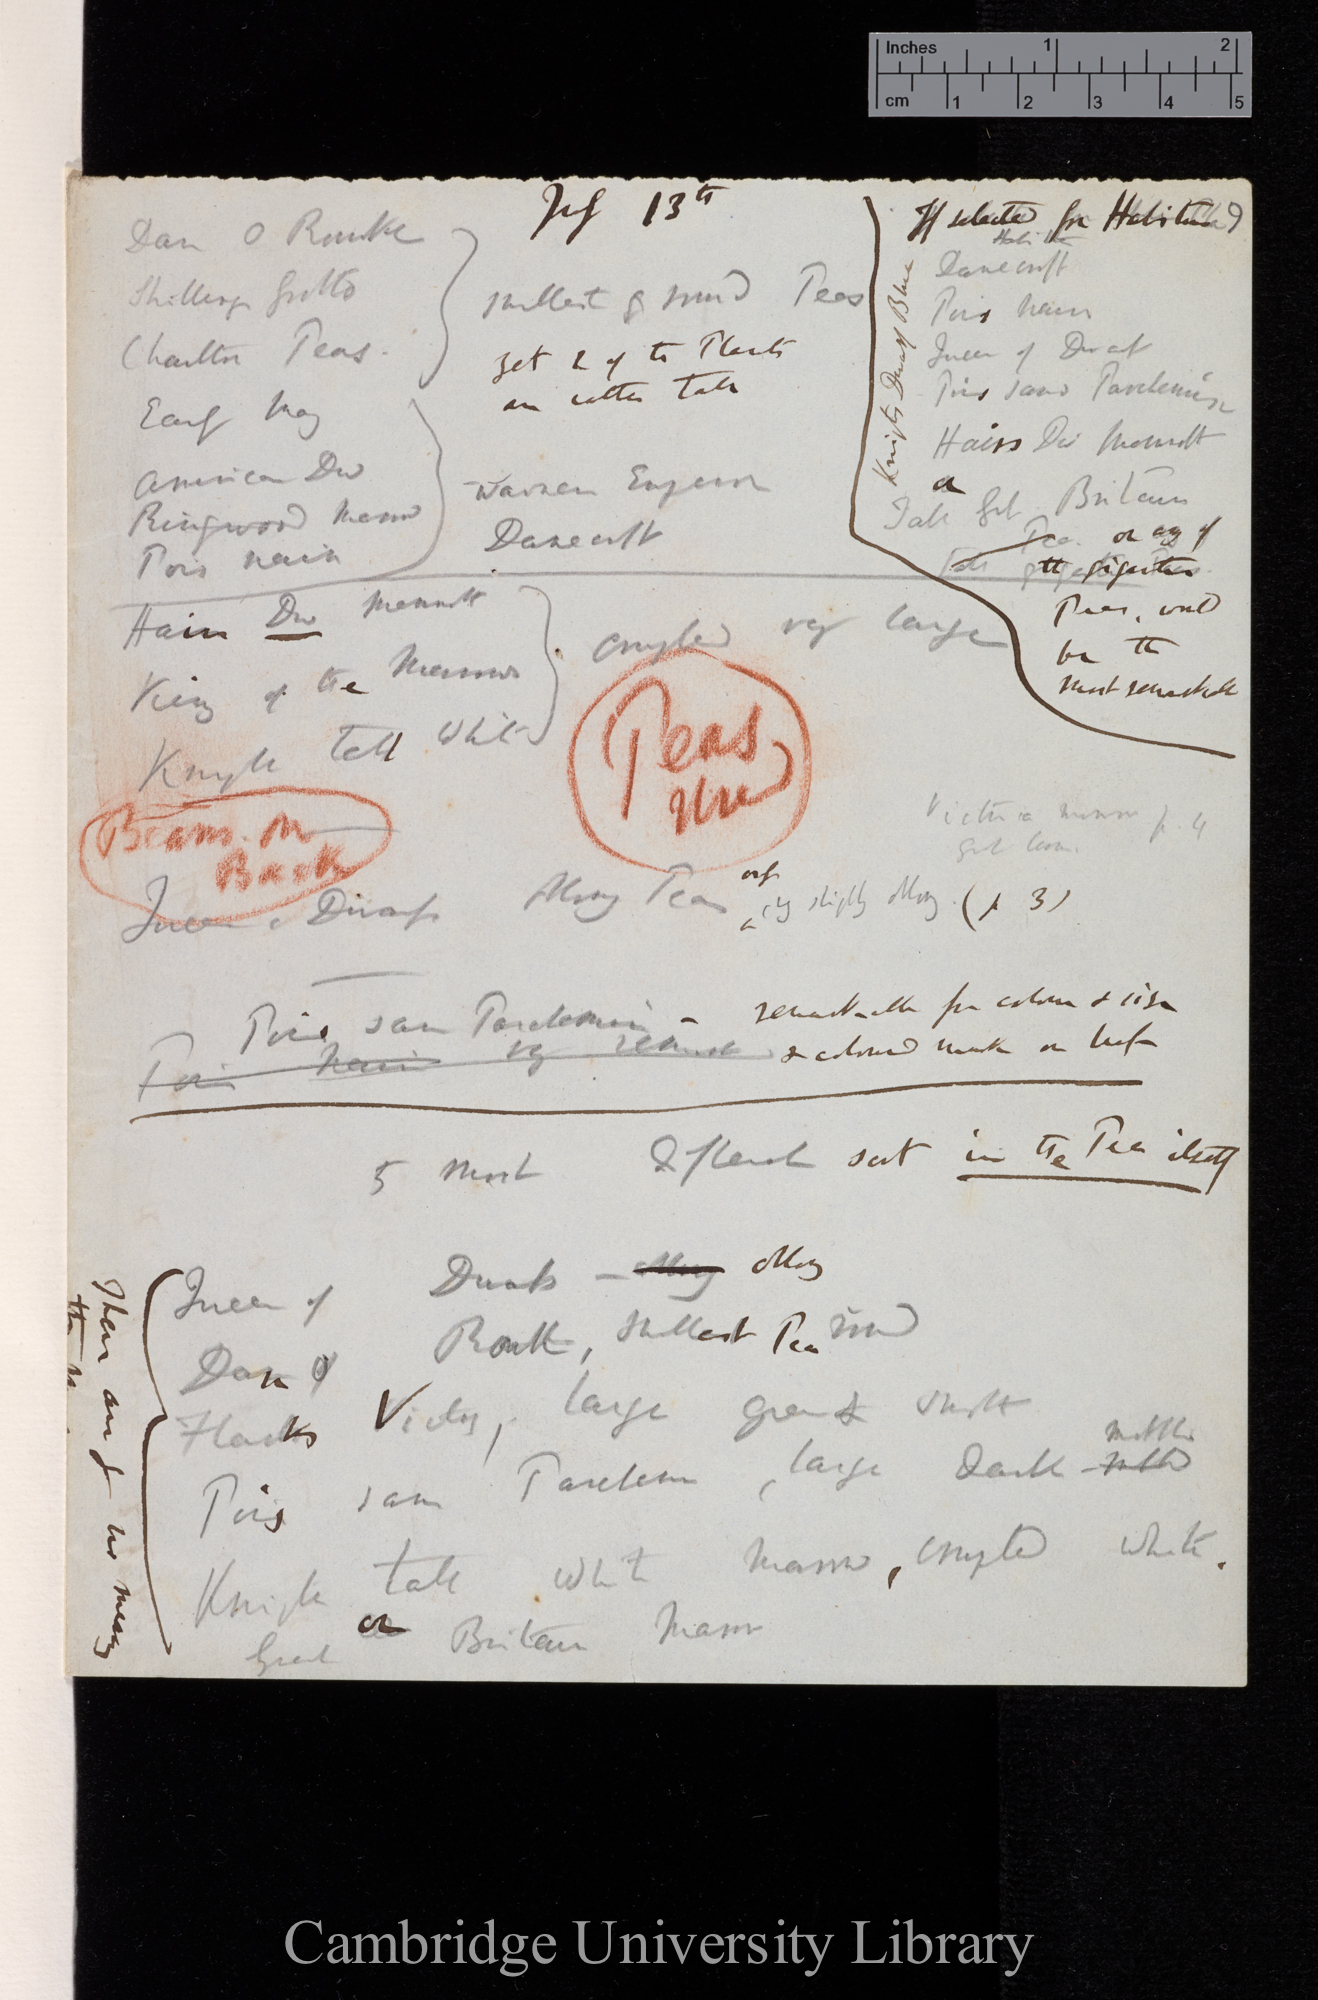 Inches 1 2
cm 1 2 3 4 5
July 13th
Dan O Rourke
Shillings Grotto
Charlton Peas.
smallest & round Peas
get 2 of the Plants
an other talk
Early May
American Dw
Ringwood Marrow
Pois nain
Warner Emperor
Danecroft
If selected for Habitus
Danecroft
Pois nain
Queen of Dwarf
Pois sans Parchemin
Hairs Dw Mammoth
or
Tall Gt Britain
or any of
the gigantic
Peas, will
be the
most remarkable
Knights Dwarf Blue
Hairs Dw Mammoth
King of the Marrows
Knight tall White
crumpled very large
Peas
Used
Beans on
Back
Victoria marrow p. 4
Queen of Dwarfs oblong Peas only
very slightly oblong (p 3)
Pois sans Parchemin – remarkable for colour & size
Pois nain vy remark & coloured mark on leaf
5 most different sort in the Pea itself
Queen of Dwarfs – oblong oblong
Dan O Rourke, smallest Pea round
Flacks Victory, large green & smooth
Pois sans Parchemin, large dark – mottled
Knight tall white Marrow, crumpled white.
or
Great Britain Marrow
There are of no many
the
Cambridge University Library